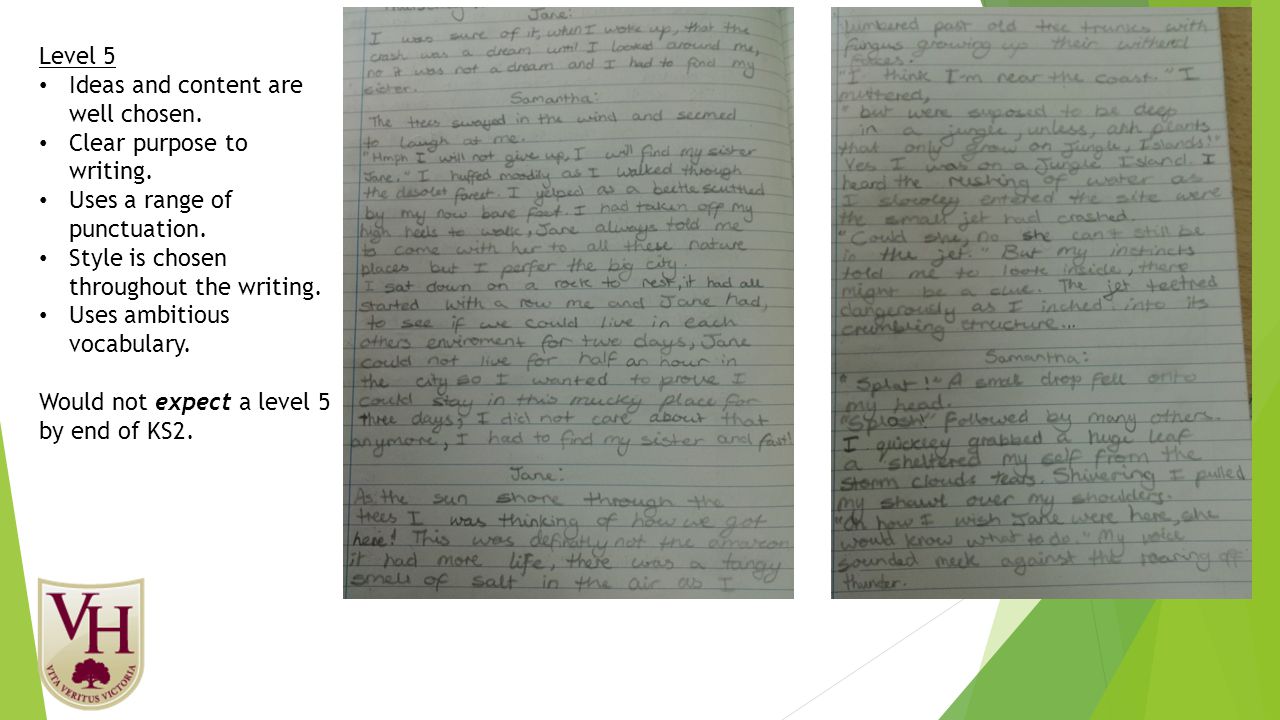 Level 5
• Ideas and content are
well chosen.
• Clear purpose to
writing.
• Uses a range of
punctuation.
• Style is chosen
throughout the writing.
• Uses ambitious
vocabulary.
Would not expect a level 5
by end of KS2.
VH
VITA VERITUS VICTORIA
Jane:
I was sure of it, when I woke up, that the
crash was a dream until I looked around me,
no it was not a dream and I had to find my
sister.
Samantha:
The trees swayed in the wind and seemed
to laugh at me.
"Hmph I will not give up, I will find my sister
Jane." I huffed moodily as I walked through
the desolet forest. I yelped as a beetle scuttled
by my now bare feet. I had taken off my
high heels to walk, Jane always told me
to come with her to all these nature
places but I perfer the big city.
I sat down on a rock to rest, it had all
started with a row me and Jane had,
to see if we could live in each
others enviroment for two days, Jane
could not live for half an hour in
the city so I wanted to prove I
could stay in this mucky place for
three days, I did not care about that
anymore, I had to find my sister and fast!
Jane:
As the sun shone through the
trees I was thinking of how we got
here! This was definatly not the amazon
it had more life, there was a tangy
smell of salt in the air as I
lumbered past old tree trunks with
fungus growing up their withered
faces.
"I think I'm near the coast." I
muttered,
"but were suposed to be deep
in a jungle, unless, ahh plants
that only grow on jungle, Islands!"
Yes I was on a Jungle Island. I
heard the rushing of water as
I slowley entered the site were
the small jet had crashed.
"Could she, no she can't still be
in the jet." But my instincts
told me to look inside, there
might be a clue. The jet teetred
dangerously as I inched into its
crumbling structure...
Samantha:
"Splat!" A small drop fell onto
my head.
"Splosh!" followed by many others.
I quickley grabbed a huge leaf
a sheltered my self from the
storm clouds tears. Shivering I pulled
my shawl over my shoulders.
"Oh how I wish Jane were here, she
would know what to do." My voice
sounded meek against the roaring off
thunder.